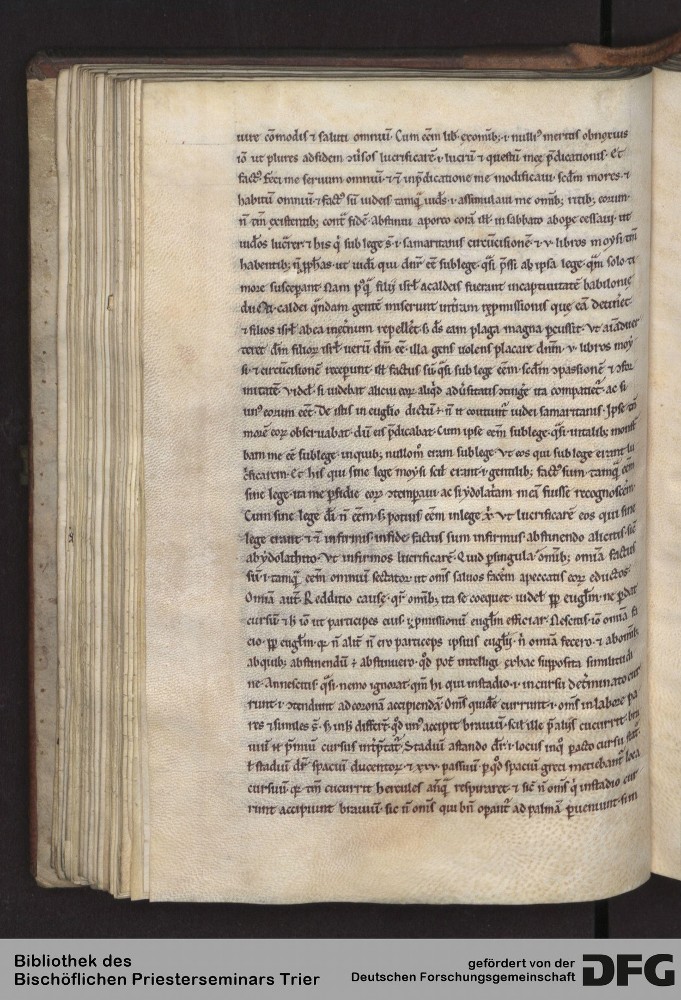 uire cōmodis ⁊ saluti omniū. Cum eēm lib. exomīb; .i. nulliꝰ meritis obnoxius
iō ut plures adfidem lucrificarē .i. lucrū ⁊ questū meę p̄dicationis. Et
factꝰ feci me seruum omniū inp̄dicatione me modificaui scd̄m mores ⁊
habitū omniū ⁊ factꝰ sū iudeis tamq̄ iudꝰs .i. assimulaui me omīb; ritib; eorum
n̄ tm̄ existentib; cont̄ fidē. Abstinui aporco corā ill. insabbato abope cessaui ut
iudꝰos lucrer̄ ⁊ his q̄ sub lege s̄ .i. samaritanis circūcisionē ⁊ .v. libros moysi tm̄
habentib; n̄ pphas ut uid̄i qui dnr̄ eē sublege q̄si p̄ssi ab ipsa lege qm̄ solo ti
more susceperant Nam pꝰq̄ filij isrl̄ acaldeis fuerant incaptiuitatē babilonię
ducti caldei q̄ndam gentē miserunt intr̄am repmissionis que eā detin̄et
⁊ filios isrl̄ abea inet̄num repelleret s; d̄s eam plaga magna pcussit. Vt
teret dm̄ filioꝝ isrl̄ uerū dm̄ eē illa gens uolens placare dnm̄ .v. libros moy
si ⁊ circūcisionē receperunt factus sū q̄si sub lege eēm scd̄m ɔpassionē ⁊ ɔfor
mitatē Videl. si uidebat alicui eoꝝ aliqd̄ aduersitatis ɔtingere ita compatietr̄ ac si
unꝰ eorum eēt. De istis in euglio dictū ÷ n̄ coutunt̄ iudei samaritanis. Ipse
morē eoꝝ obseruabat dū eis p̄dicabat. Cum ipse eēm sublege q̄si intalib; monst̄
bam me eē sublege inquib; nullom̄ eram sublege Vt eos qui sub lege erant lu
crificarem. Et his qui sine lege moysi scil. erant .i. gentilib; factꝰ sum tamq̄ eēm
sine lege ita me pfidię eoꝝ ɔtemperaui ac si ydolatram meā fuisse recognoscerem.
Cum sine lege d̄i n̄ eēm s; potius eēm inlege xp̄i Vt lucrificarē eos qui sine
lege erant infirmis infide factus sum infirmus abstinendo alicetis sic̄
abydolathito. Vt infirmos lucrificarē. Quid p singula omīb; omīa factus
sū .i. tamq̄ eēm omniū sectator ut oms̄ saluos facerē apeccatis eoꝝ eductos.
Omīa aut̄. Redditio causę qr̄ omīb; ita se coequet uidel. pp̄ euglm̄ ne pdat
cursū ⁊ h iō ut particeps eius .i. pmissionū euglm̄ efficiar. Nescitis iō omīa fa
cio pp̄ euglm̄ qꝛ n̄ alit̄ n̄ ero particeps ipsius euglij n̄ omīa fecero ⁊ abomīb;
abquib; abstinendū ÷ abstinuero qd̄ potest intelligi exhac supposita similitudi
ne. Annescitis q̄si nemo ignorat qm̄ hi qui instadio .i. in cursū determinato cur
runt .i. ɔtendunt adcoronā accipiendā. Oms̄ quidē currunt .i. oms̄ inlabore pa
res ⁊ similes s̄. s; inh differt̄ qd̄ unꝰ accipit brauiū scil. ille p̄ alijs cucurrit bra
uiū n̄ p̄miū cursus int̄ptatr̄. Stadiū astando dr̄ .i. locus inquo pacto cursu statr̄.
ł stadiū dr̄ spaciū ducentoꝝ ⁊ xxv passuū p qd̄ spaciū greci metiebant̄ loca
cursuū qꝛ tm̄ cucurrit hercules anq̄ respiraret ⁊ sic̄ n̄ oms̄ q̄ instadio cur
runt accipiunt brauiū sic n̄ oms̄ qui bn̄ opant̄ ad palmā pueniunt
Bibliothek des
Bischöflichen Priesterseminars Trier
gefördert von der
Deutschen Forschungsgemeinschaft
DFG